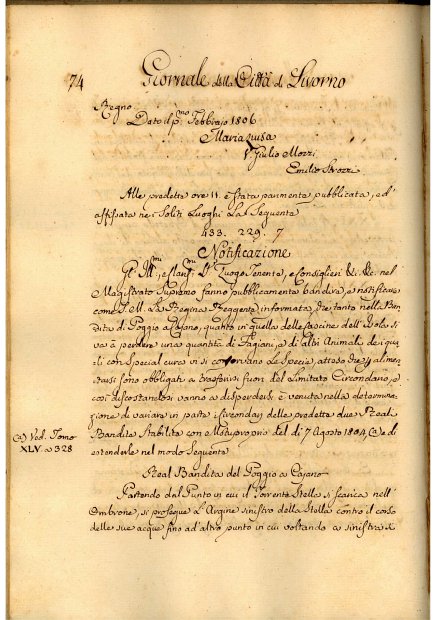 74 Giornale della Città di Livorno
Regno
Dato il pmo Febbraio 1806
Maria Luisa
V. Giulio Mozzi
Emilio Strozzi
Alle predette ore 11. è stata parimente pubblicata, ed
affissata nei Soliti Luoghi La Seguente
433. 229. 7
Notificazione
Gl' Ill.mi, e Claris.mi SS. Luogo Tenente, e Consiglieri &c. &c. nel
Magistrato Supremo fanno pubblicamente bandire, e notificare
come S. M. La Regina Reggente informata, che tanto nella Ban-
dita di Poggio a Cajano, quanto in quella delle fascine dell'Isola si
va a perdere una quantità di Fagiani, e di altri Animali de i qua-
li con Special cura vi si conservano Le Specie, atteso che per alimen-
tarsi sono obbligati a trasferirsi fuori del Limitato Circondario, e
così discostandosi vanno a disperdersi è venuta nella determina-
zione di variare in parte i Circondarj delle predette due Reali
Bandite Stabilita con Motuproprio del dì 7 Agosto 1804 (a) e di
estenderle nel modo Seguente
(a) Ved. Tomo
XLV. a 328
Real Bandita del Poggio a Cajano
Partendo dal Punto in cui il Torrente Stella si scarica nell'
Ombrone, si prosegue L'Argine sinistro della Stella contro il corso
delle sue acque fino ad altro punto in cui voltando a sinistra si